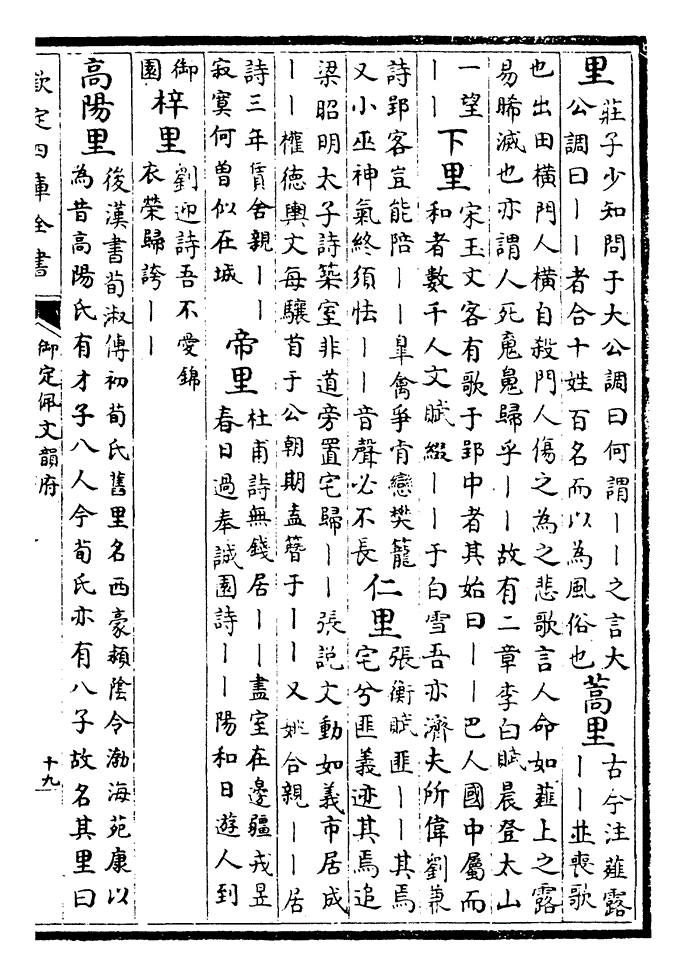 里
莊子少知問于大公調曰何謂丨丨之言大
公調曰丨丨者合十姓百名而以為風俗也
蒿里
古今注薤露
丨丨並喪歌
也出田橫門人橫自殺門人傷之為之悲歌言人命如薤上之露
易晞滅也亦謂人死䰟鬽歸乎丨丨故有二章李白賦晨登太山
一望
丨丨
下里
宋玉文客有歌于郢中者其始曰丨丨巴人國中屬而
和者數千人文賦綴丨丨于白雪吾亦濟夫所偉劉兼
詩郢客豈能陪丨丨臯禽爭肯戀樊籠
又小巫神氣終須怯丨丨音聲必不長
仁里
張衡賦匪丨丨其焉
宅兮匪義迹其焉追
梁昭明太子詩築室非道旁置宅歸丨丨張說文動如義市居成
丨丨權德輿文每驤首于公朝期盍簪于丨丨又姚合親丨丨居
詩三年賃舍親丨丨
寂寞何曾似在城
帝里
杜甫詩無錢居丨丨盡室在邊疆戎昱
春日過奉誠園詩丨丨陽和日遊人到
御
園
梓里
劉迎詩吾不愛錦
衣榮歸誇丨丨
高陽里
後漢書荀淑傳初荀氏舊里名西豪潁陰令渤海苑康以
為昔高陽氏有才子八人今荀氏亦有八子故名其里曰
欽定四庫全書
御定佩文韻府
十九